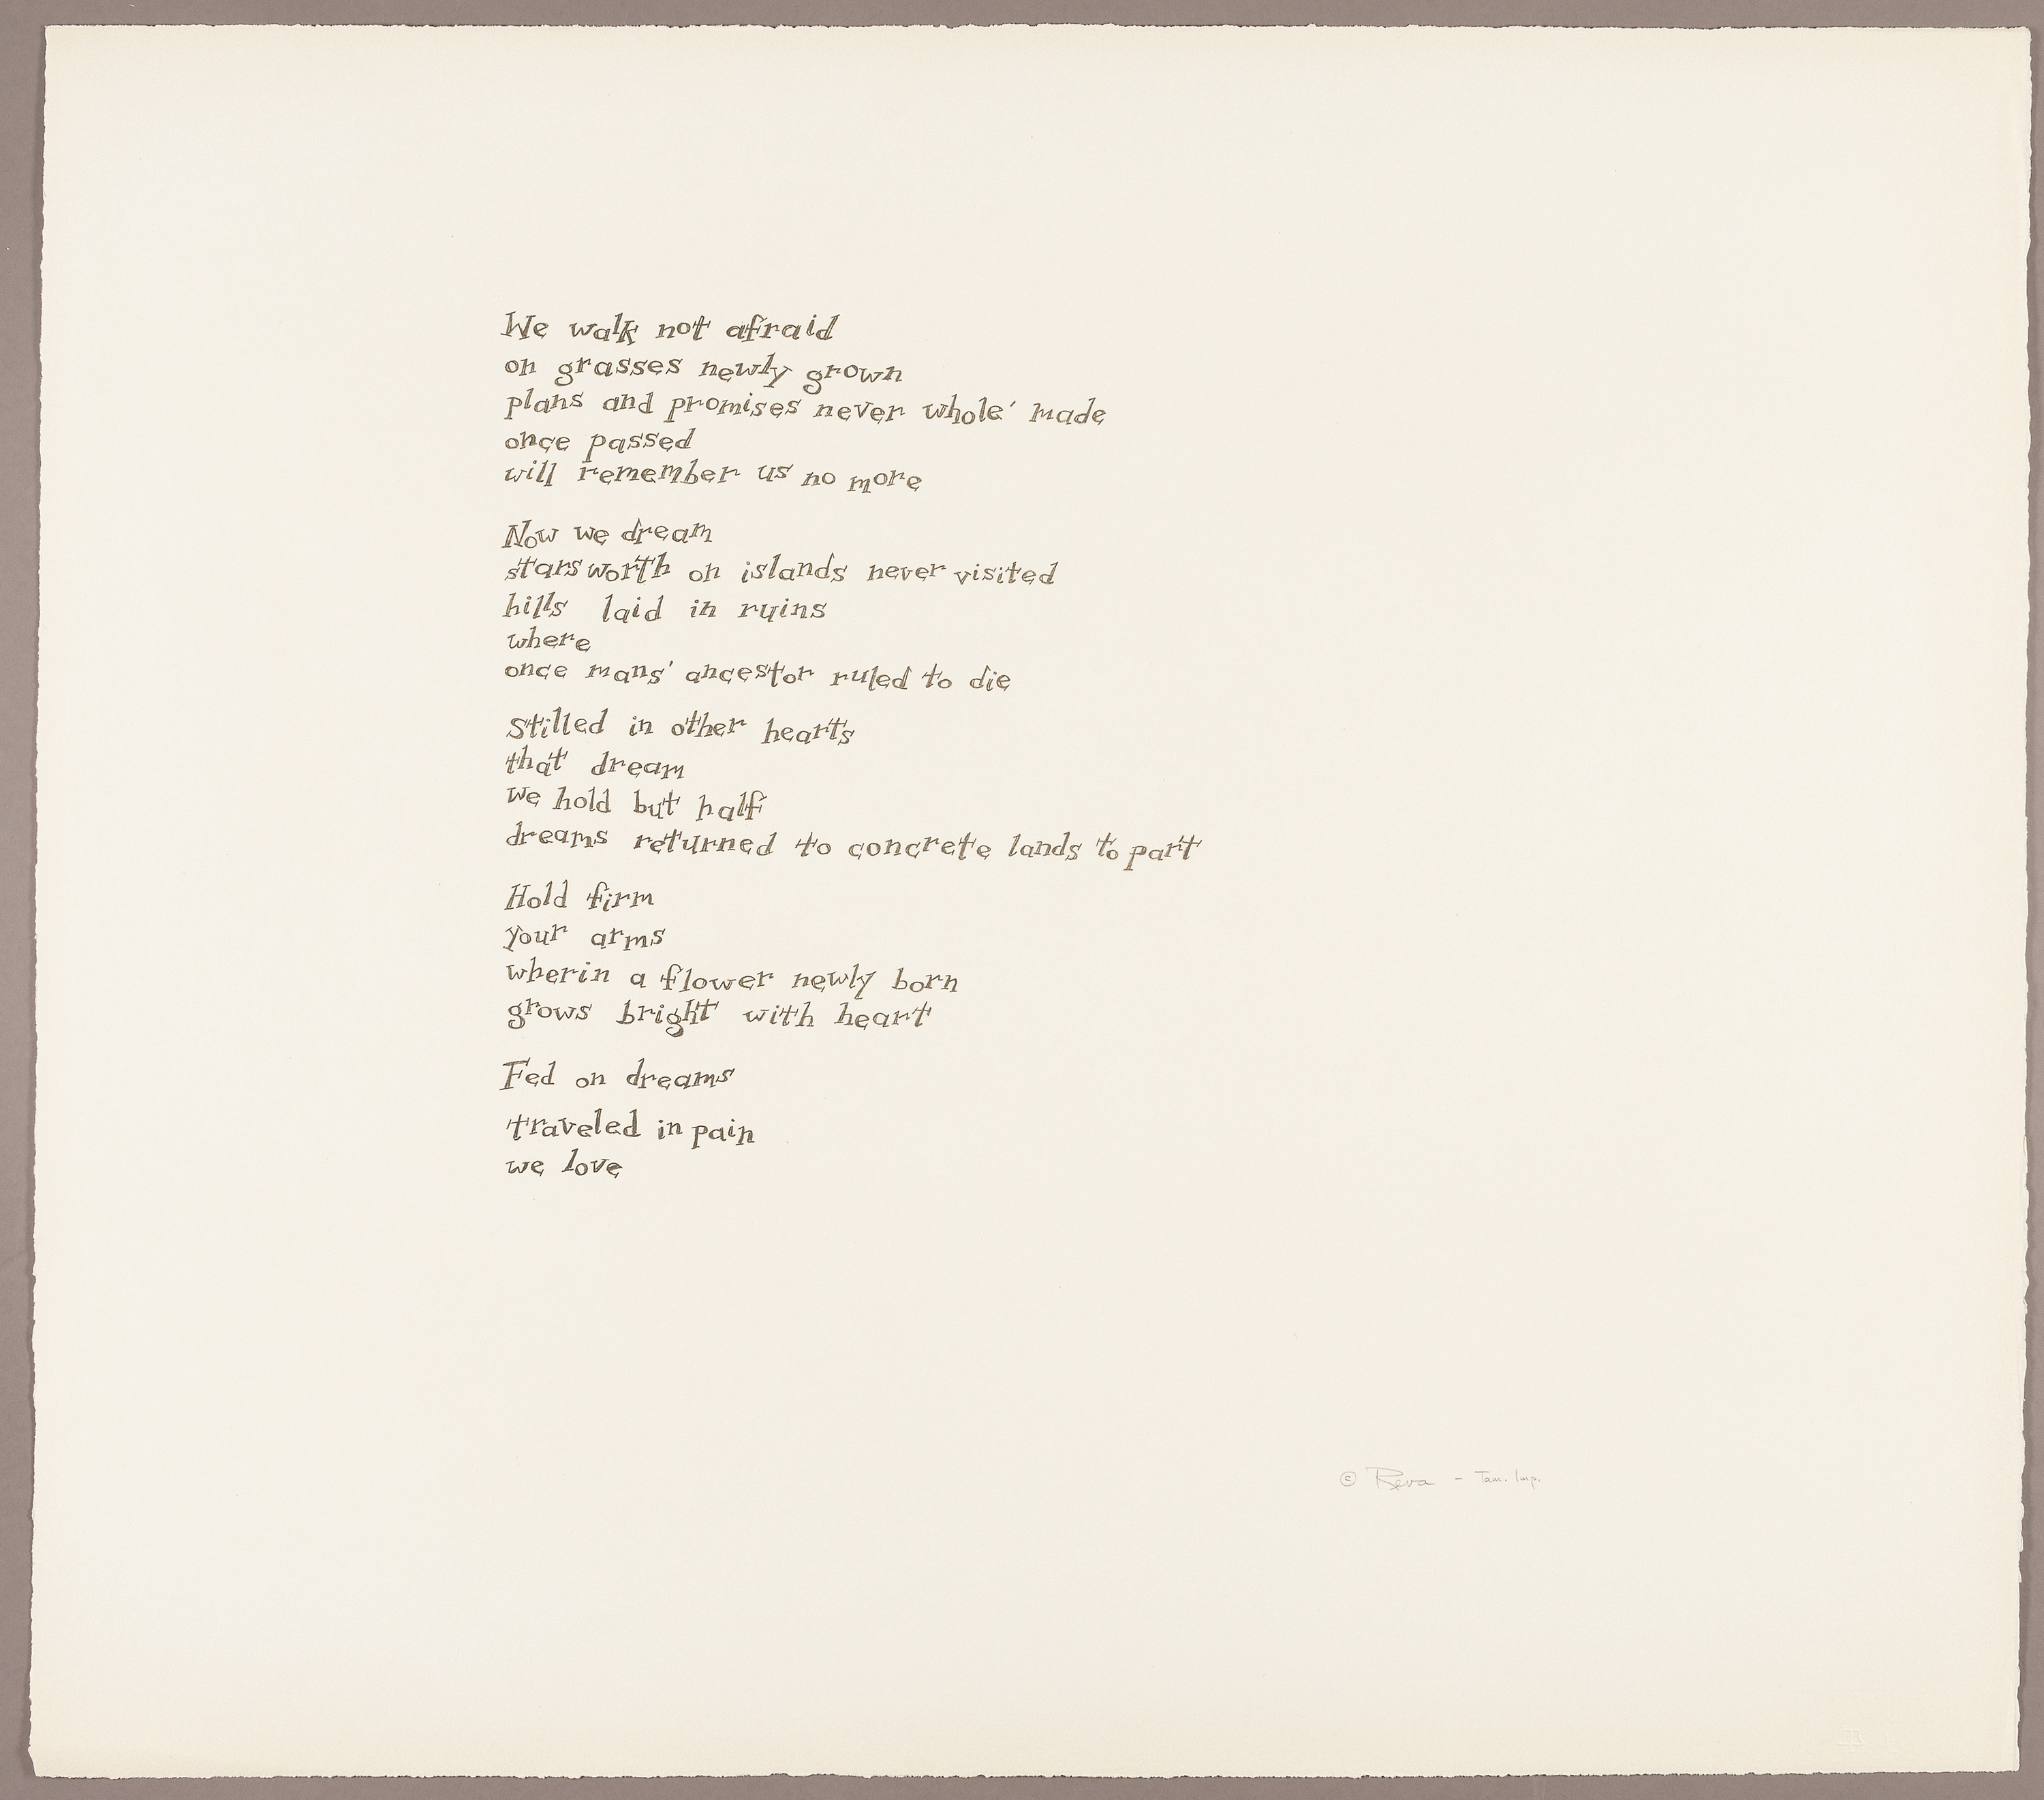 We walk not afraid
on grasses newly grown
plans and promises never whole' made
once passed
will remember us no more
Now we dream
stars worth on islands never visited
hills laid in ruins
where
once mans' ancestor ruled to die
Stilled in other hearts
that dream
we hold but half
dreams returned to concrete lands to part
Hold firm
your arms
wherin a flower newly born
grows bright with heart
Fed on dreams
traveled in pain
we love
© Reva - Tam. Imp.